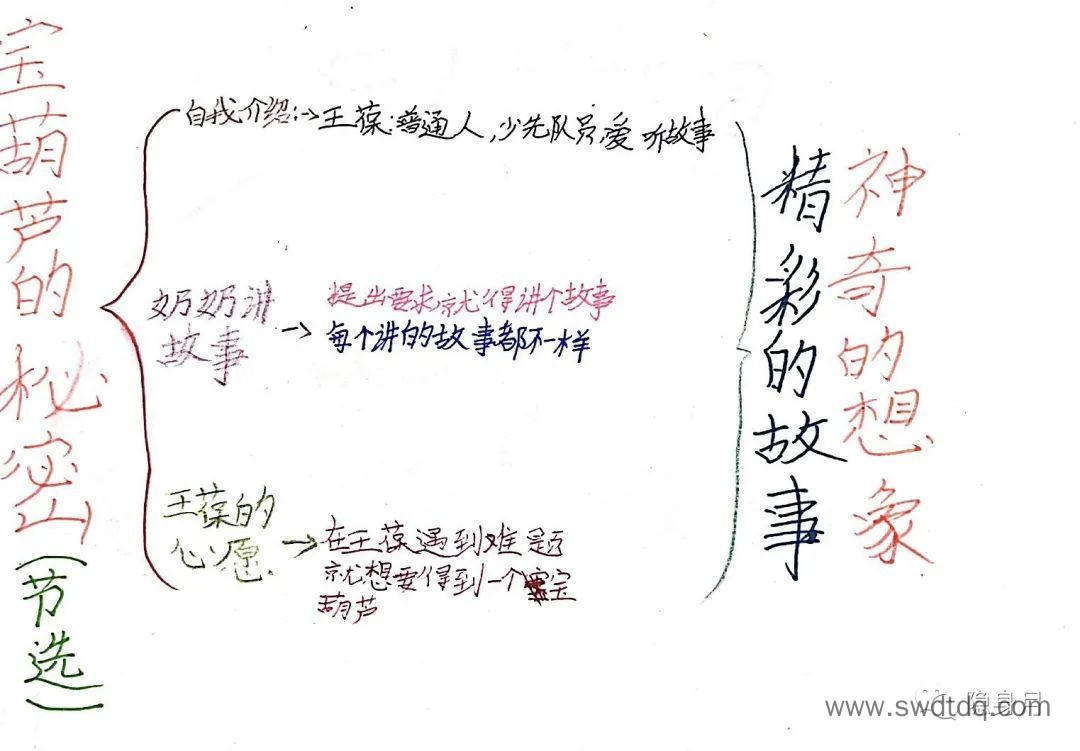 宝葫芦的秘密(节选)
自我介绍:→王葆:普通人,少先队员,爱听故事
奶奶讲
故事
→
提出要求就得讲个故事
每个讲的故事都不一样
王葆的
心愿
→在王葆遇到难题
就想要得到一个宝
葫芦
精彩的故事
神奇的想象
隐身吊
www.swdtdq.com